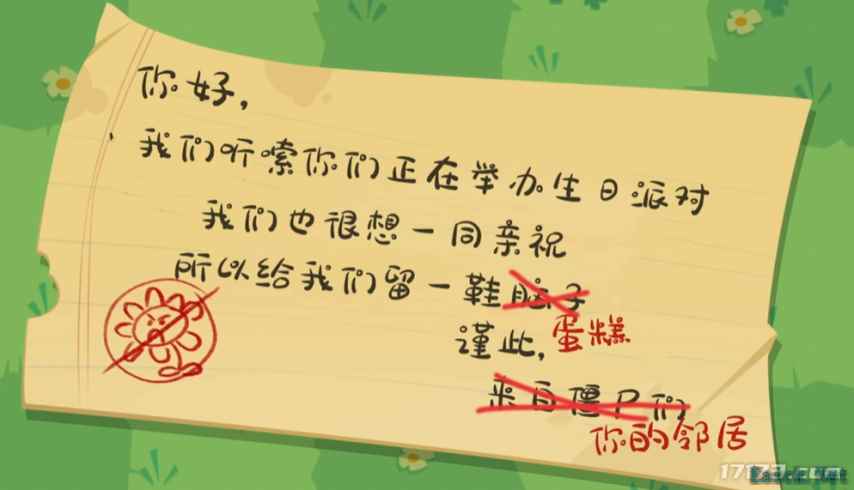 你好，
我们听嗦你们正在举办生日派对
我们也很想一同亲祝
所以给我们留一鞋脑子
蛋糕
谨此，
来自僵尸们
你的邻居